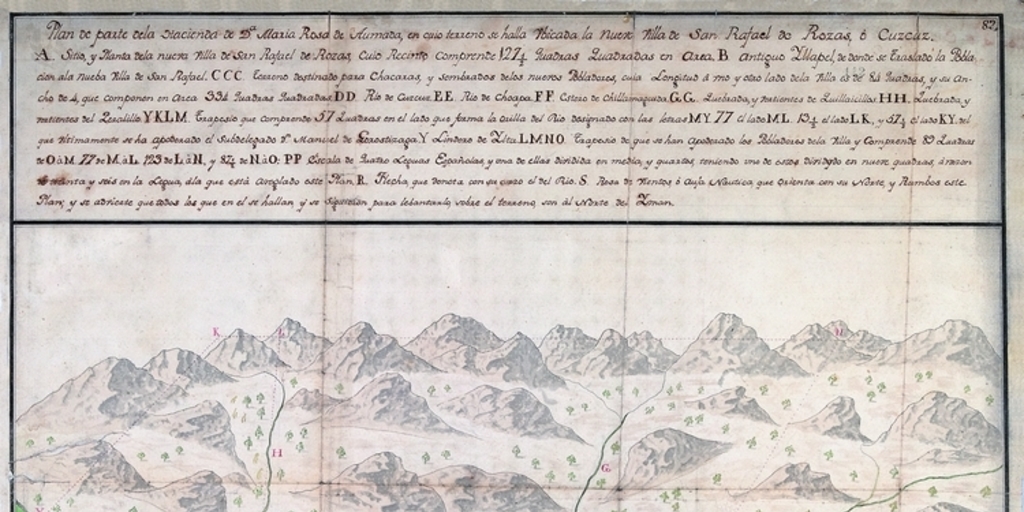 82
Plan de parte dela Hacienda de Da. Maria Rosa de Aumada, en cuio terreno se halla Vbicada la nueva Villa de San Rafael de Rozas, ó Cuzcuz.
A. Sitio, y Planta dela nueva Villa de San Rafael de Rozas, Cuio Recinto comprende 127½ Quadras Quadradas en Area. B Antiguo Yllapel, de donde se traslado la Pobla-
cion ala nueba Villa de San Rafael. CCC. Terreno destinado para Chacaras, y sembrados delos nuevos Pobladores, cuia Longitud á uno y otro lado dela Villa es de 84 Quadras, y su An-
cho de 4, que componen en Area 334 Quadras Quadradas DD. Rio de Cuzcuz. EE. Rio de Choapa. FF. Estero de Chillamaguida. G.G. Quebrada, y vertientes de Quillaicillos. HH. Quebrada, y
vertientes del Peralillo YKLM. Trapesio que comprende 57 Quadras en el lado que forma la Orilla del Rio designado con las letras MY. 77 el lado ML. 13½ el lado LK, y 57½ el lado KY. del
que vltimamente se ha apoderado el Subdelegado Dn. Manuel de Gorostizaga. Y Lindero de Pita. LMNO. Trapesio de que se han apoderado los Pobladores dela Villa y Comprende 89 Quadras
de O á M. 77 de M á L. 123 de L á N, y 87½ de N á O: PP Escala de Quatro Leguas Españolas, y una de ellas dividida en media, y quartos, teniendo uno de estos dividido en nueve quadras, á razon
de treinta y seis en la Legua, ála que está Arreglado este Plan. R. Flecha, que denota con su curso el del Rio. S. Rosa de Vientos, ó Auja Nautica, que orienta con su Norte, y Rumbos este
Plan; y se advierte que todos los que en el se hallan, y se siguieron para lebantarlo sobre el terreno, son ál Norte del
K
L
H
G